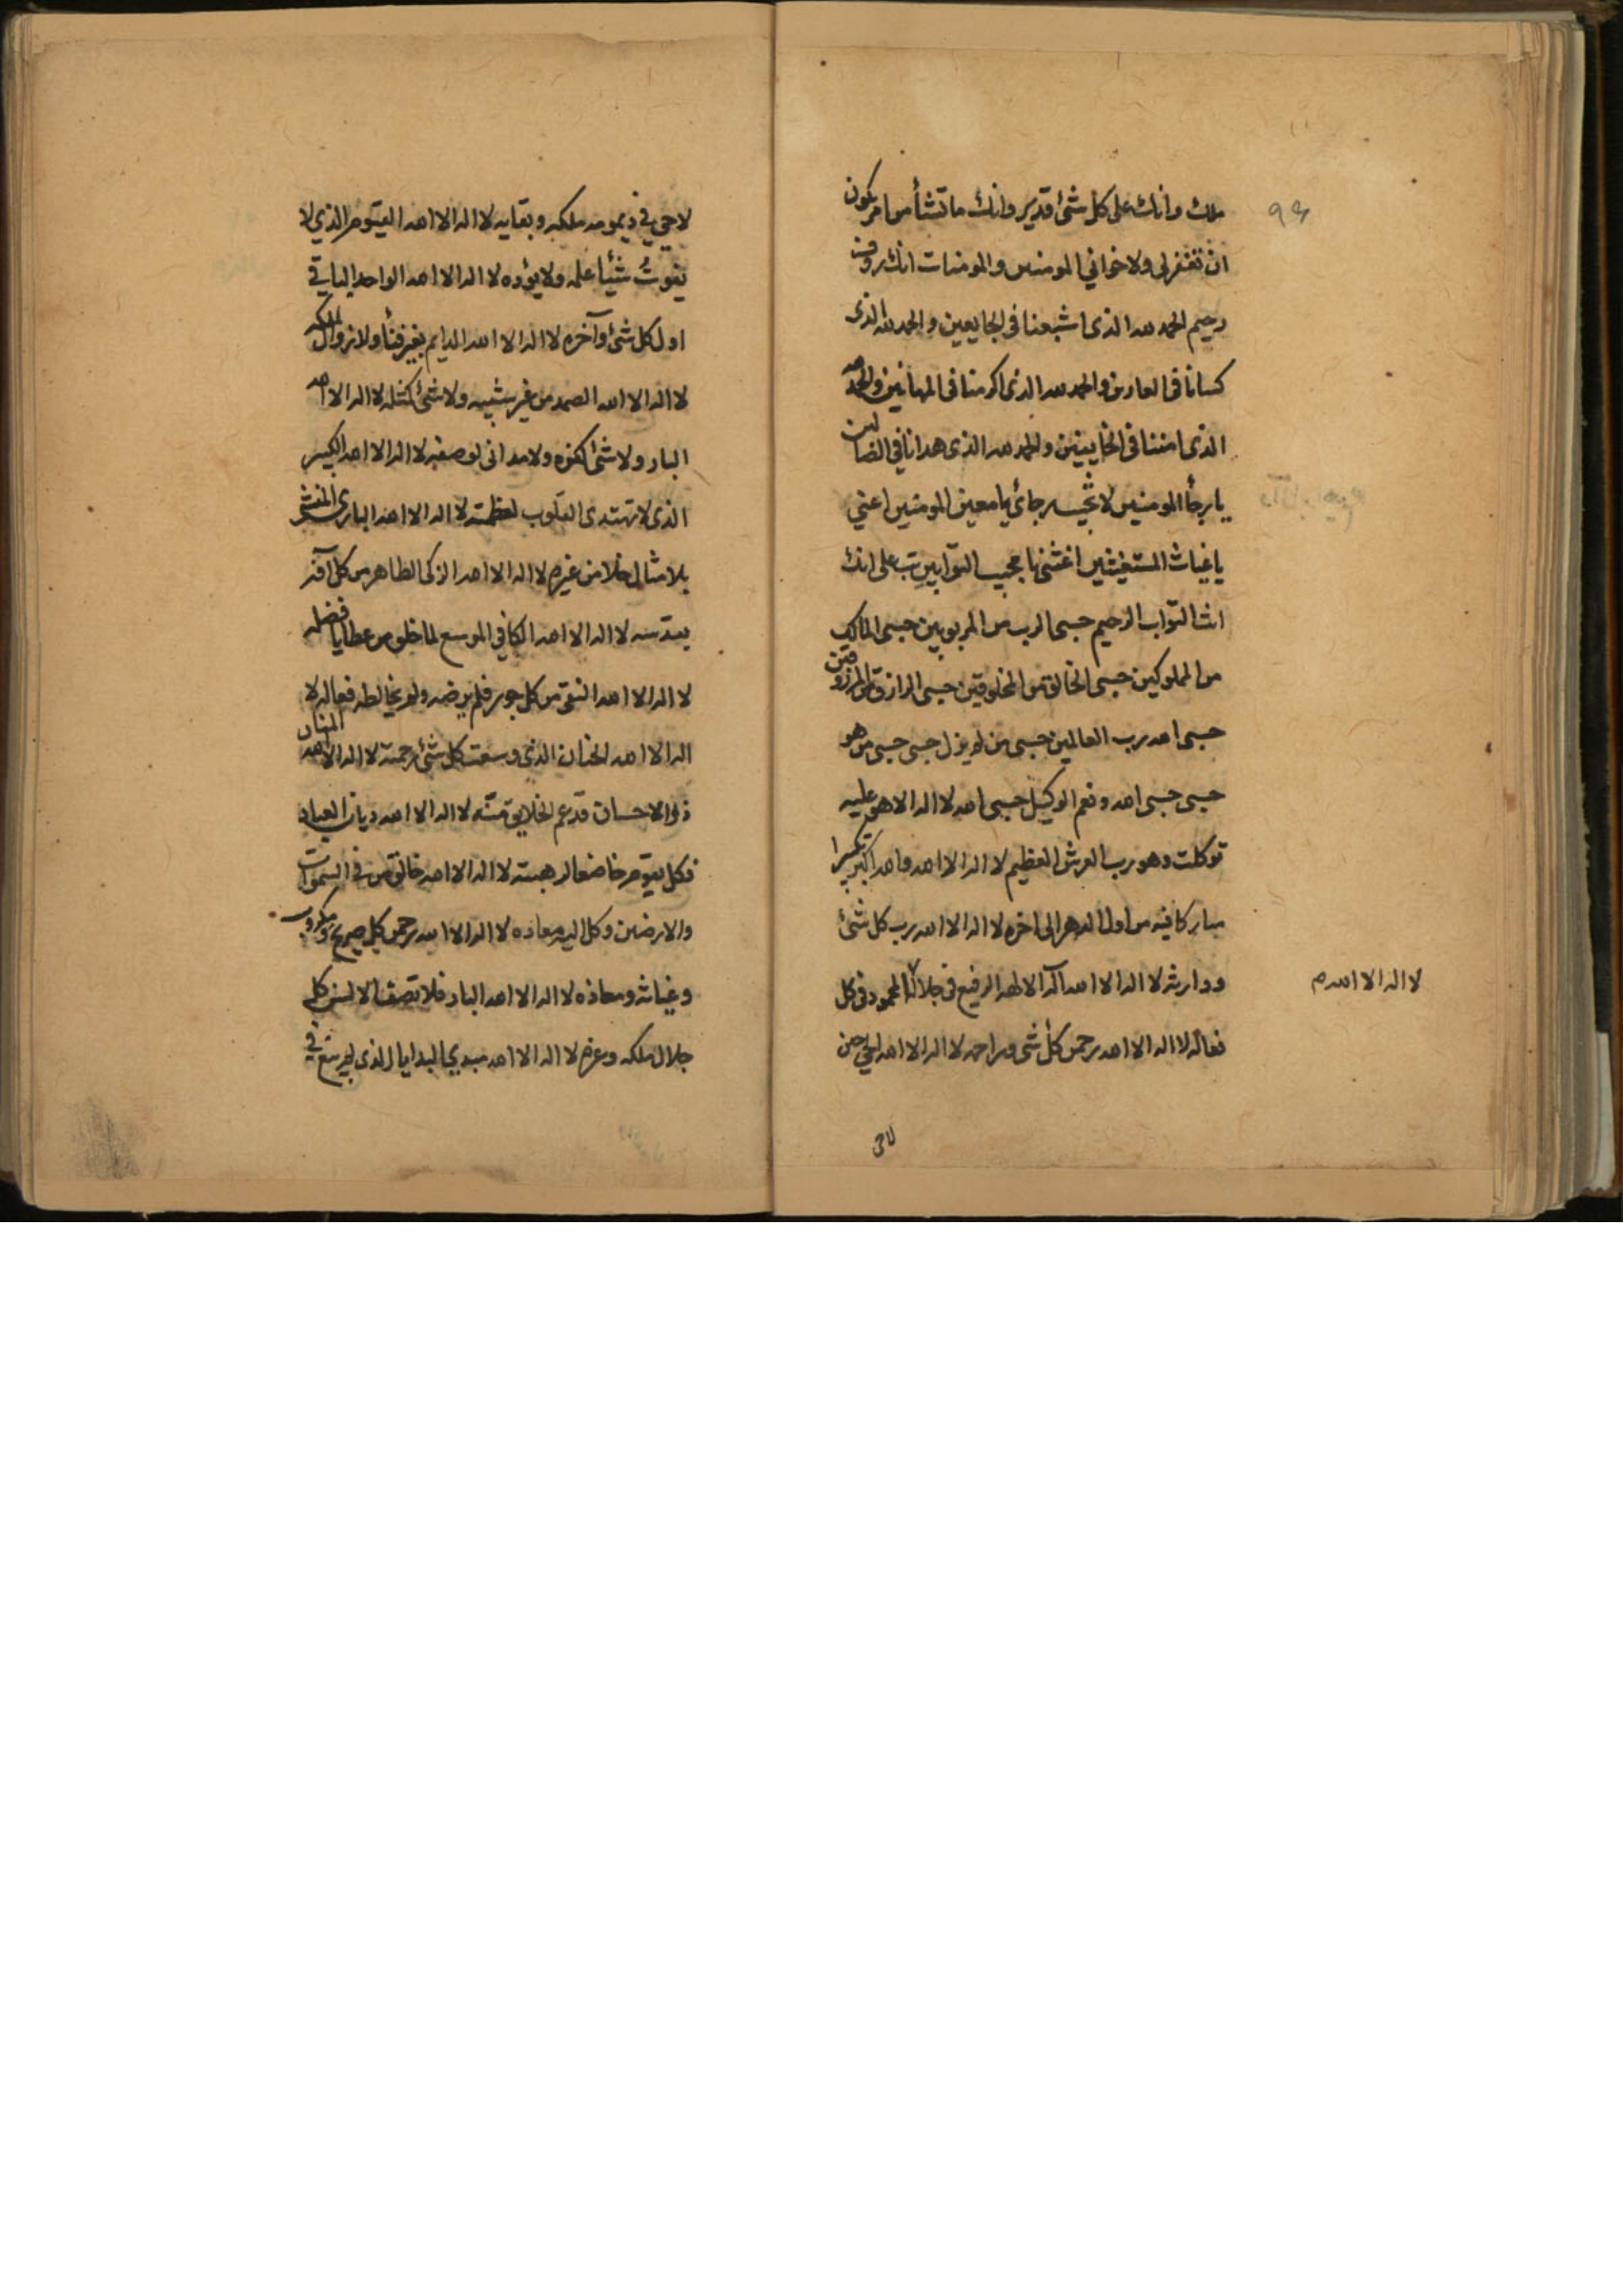 ٩٤
ملك وانك على كل شئ قدير وانك ما تشأ من امر يكون
ان تغفر لى ولاخواني المومنين والمومنات انك روف
رحيم الحمد لله الذى اشبعنا فى الجايعين والحمد لله الذى
كسانا فى العارين والحمد لله الذى اكرمنا فى المهانين والحمد لله
الذى امننا فى الخايفين والحمد لله الذى هدانا فى الضالين
يا رجأ المومنين لا تخيب رجائ يا معين المومنين اعني
يا غياث المستغيثين اغثنى يا مجيب التوابين تب على انك
انت التواب الرحيم حسبى الرب من المربوبين حسبى المالك
من المملوكين حسبى الخالق من المخلوقين حسبى الرازق من المرزوقين
حسبى الله رب العالمين حسبى من لم يزل حسبى حسبى من هو
حسبى حسبى الله ونعم الوكيل حسبى الله لا اله الا هو عليه
توكلت وهو رب العرش العظيم لا اله الا الله والله اكبر تكبيرا
مباركا فيه من اول الدهر الى اخره لا اله الا الله رب كل شئ
ووارثه لا اله الا الله اله الالهه الرفيع فى جلاله المحمود فى كل
لا اله الا الله م
فعاله لا اله الا الله رحمن كل شى وراحمه لا اله الا الله الحي حين
لاحى
لا حي في ديمومه ملكه وبقايه لا اله الا الله القيوم الذي لا
يفوت شيئا علمه ولا يؤده لا اله الا الله الواحد الباقي
اول كل شئ وآخره لا اله الا الله الدايم بغير فنأ ولا زوال لملكه
لا اله الا الله الصمد من غير شبيه ولا شئ كمثله لا اله الا الله
البار ولا شئ كفوه ولا مدانى لوصفه لا اله الا الله الكبير
الذى لا تهتدى القلوب لعظمته لا اله الا الله البارى المنشئ
بلا مثال خلا من غيره لا اله الا الله الزكى الطاهر من كل آفه
بقدسه لا اله الا الله الكافي الموسع لما خلق من عطايا فضله
لا اله الا الله النقى من كل جور فلم يرضه ولم يخالطه فعاله لا
اله الا الله الحنان الذي وسعت كل شئ رحمته لا اله الا الله المنان
ذو الاحسان قد عم الخلايق منّه لا اله الا الله ديان العباد
فكل يقوم خاضعا لرهبته لا اله الا الله خالق من في السموات
والارضين وكل اليه معاده لا اله الا الله رحمن كل صريخ ومكروب
وغياثه ومعاذه لا اله الا الله البار فلا تصف الالسن كل
جلال ملكه وعزه لا اله الا الله مبدي البدايا الذى لم يبتغ في